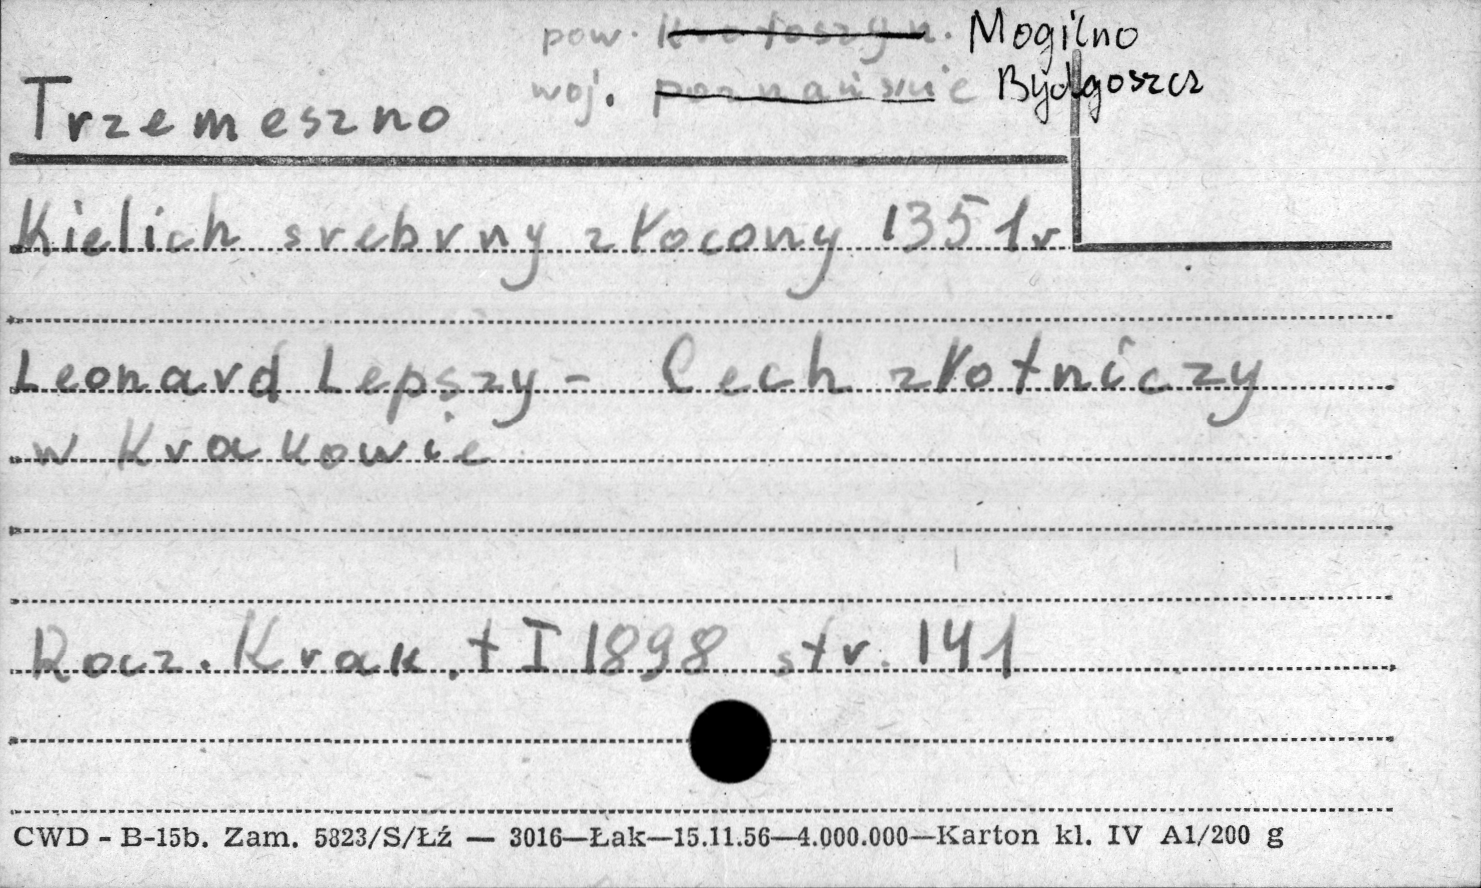 pow. Krotoszyn. Mogilno
woj. poznańskie Bydgoszcz
Trzemeszno
Kielich srebrny złocony 1351r
Leonard Lepszy - Cech złotniczy
w Krakowie
Rocz. Krak. t I 1898 str. 141
CWD - B-15b. Zam. 5823/S/Łź — 3016—Łak—15.11.56—4.000.000—Karton kl. IV A1/200 g